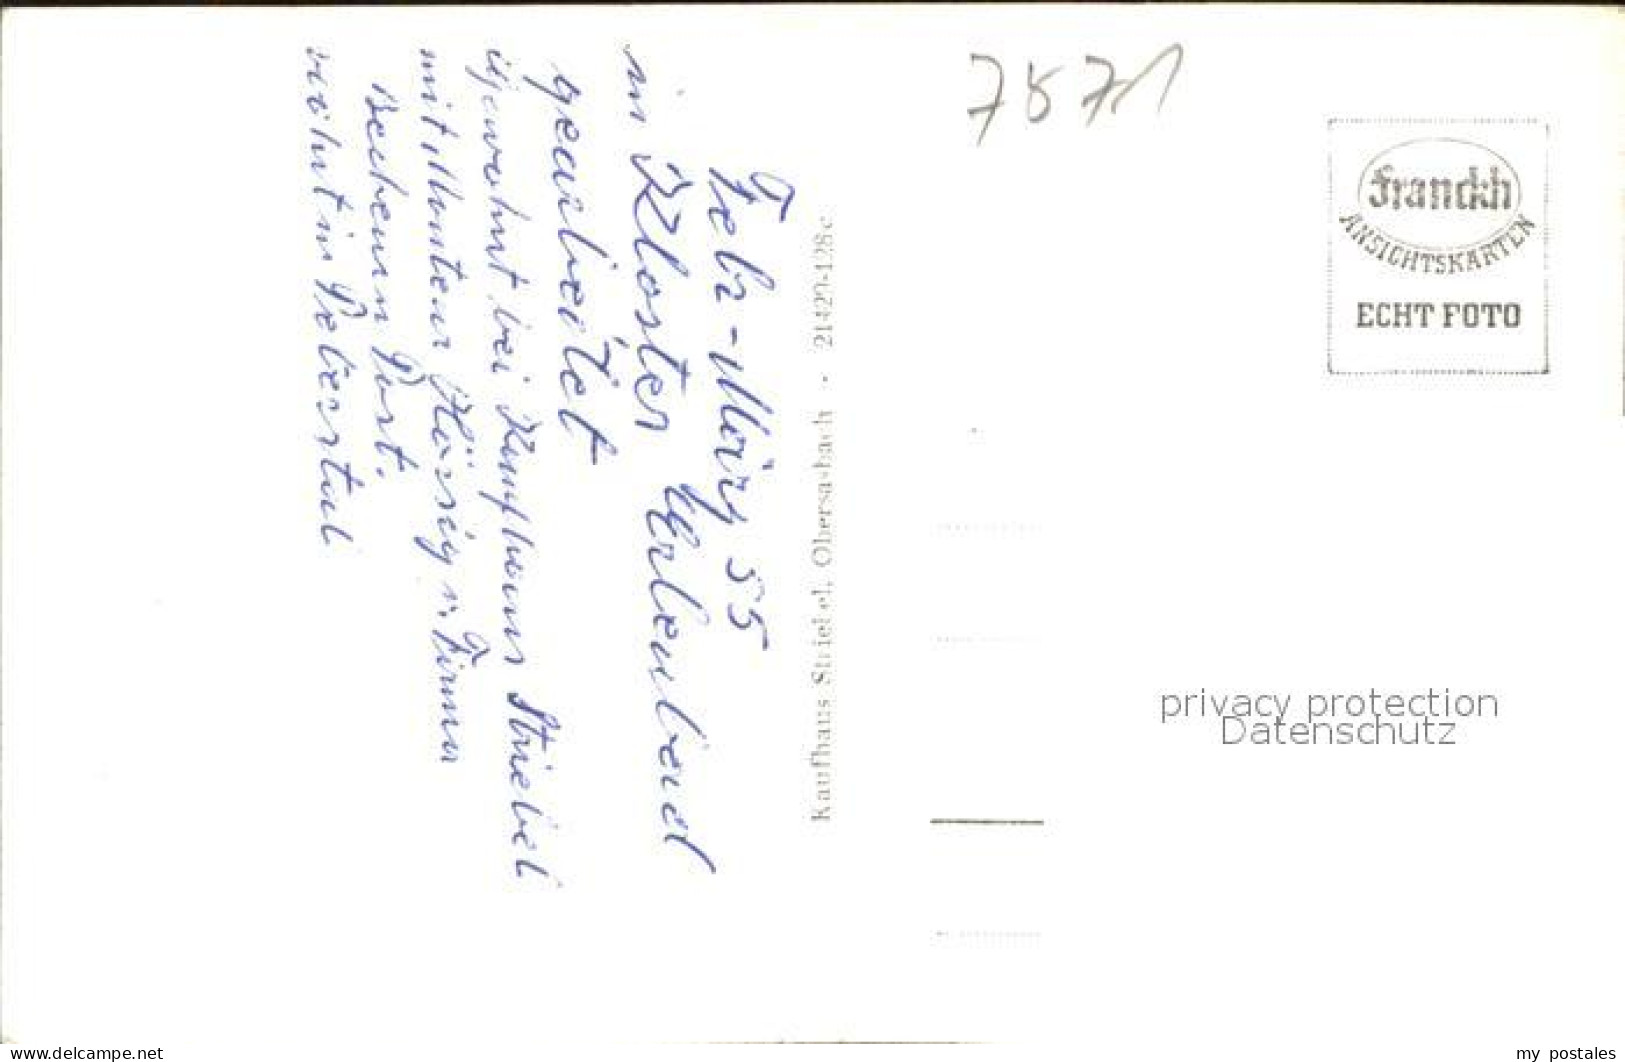 Febr-März 55
in Kloster Erlenbad
gearbeitet
gewohnt bei Kaufhaus Striebel
mit Monteur Hässig v. Firma
Port.
wohnt in
Kaufhaus Striebel, Obersasbach · 21427-428c
7871
Franckh
ANSICHTSKARTEN
ECHT FOTO
privacy protection
Datenschutz
www.delcampe.net
my_postales